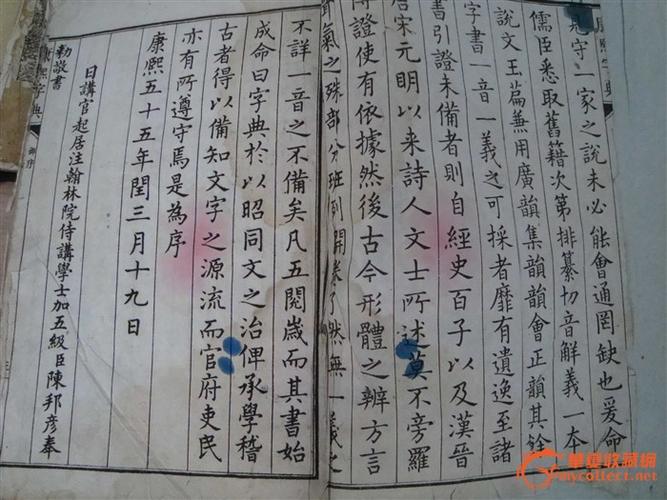 守一家之說未必能會通罔缺也爰命
儒臣悉取舊籍次第排纂切音解義一本
說文玉篇兼用廣韻集韻韻會正韻其餘
字書一音一義之可採者靡有遺逸至諸
書引證未備者則自經史百子以及漢晉
唐宋元明以來詩人文士所述莫不旁羅
博證使有依據然後古今形體之辨方言
氣之殊部分班列開卷了然無一義之
不詳一音之不備矣凡五閱歲而其書始
成命曰字典於以昭同文之治俾承學稽
古者得以備知文字之源流而官府吏民
亦有所遵守焉是為序
康熙五十五年閏三月十九日
日講官起居注翰林院侍講學士加五級臣陳邦彥奉
勅敬書
康熙字典
御序
華夏收藏網
mycollect.net